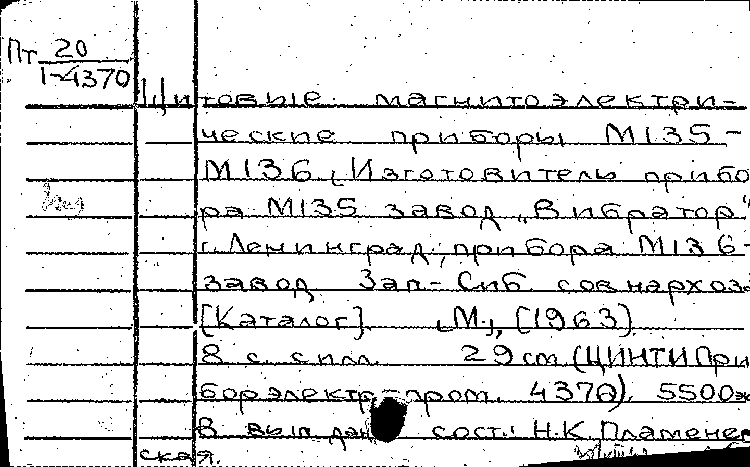 Пт 20
1-4370
Щитовые магнитоэлектри-
ческие приборы М135-
М136. Изготовитель прибо
ра М135 завод „Вибратор"
г. Ленинград, прибора М136-
завод Зап-Сиб совнархоз.
[Каталог]. М., [1963]
8 с. с илл. 29 cm (ЦИНТИ При
борэлектропром. 4370). 5500 эк
В вып. дан. сост.: Н.К. Пламенев
ская.